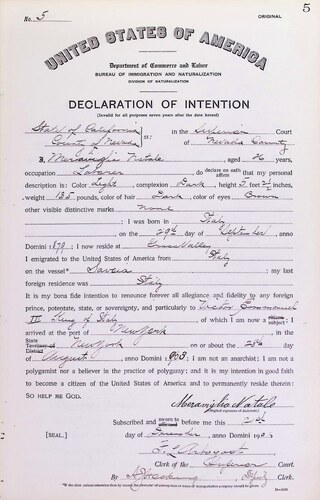 5
No. 5
ORIGINAL
UNITED STATES OF AMERICA
Department of Commerce and Labor
BUREAU OF IMMIGRATION AND NATURALIZATION
DIVISION OF NATURALIZATION
DECLARATION OF INTENTION
(Invalid for all purposes seven years after the date hereof)
State of California
County of Nevada ss: in the Superior Court
of Nevada County
I, Meraviglia Natale, aged 26 years,
occupation Laborer, do declare on oath affirm that my personal
description is: Color Light, complexion Dark, height 5 feet 2½ inches,
weight 135 pounds, color of hair Dark, color of eyes Brown
other visible distinctive marks None
I was born in Italy
on the 29th day of September, anno
Domini 1879; I now reside at Grass Valley
I emigrated to the United States of America from Italy
on the vessel* Savoia; my last
foreign residence was Italy
It is my bona fide intention to renounce forever all allegiance and fidelity to any foreign
prince, potentate, state, or sovereignty, and particularly to Victor Emmanuel
III King of Italy, of which I am now a citizen subject; I
arrived at the port of New York, in the
State Territory District of New York on or about the 28th day
of August, anno Domini 1903; I am not an anarchist; I am not a
polygamist nor a believer in the practice of polygamy; and it is my intention in good faith
to become a citizen of the United States of America and to permanently reside therein:
SO HELP ME GOD.
Meraviglia Natale
(Original signature of declarant)
Subscribed and sworn to affirmed before me this
[SEAL.] day of, anno Domini 190
F. L. Arbogast
Clerk of the Superior Court.
By, Deputy Clerk.